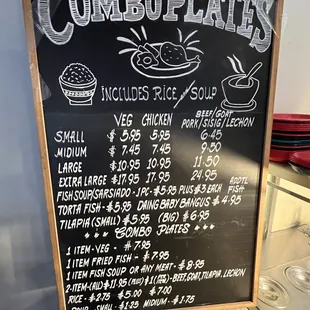 COMBO PLATES
INCLUDES RICE AND SOUP
VEG CHICKEN BEEF/GOAT
PORK/SISIG/LECHON
SMALL $5.95 5.95 6.45
MIDIUM $7.45 7.45 9.50
LARGE $10.95 10.95 11.50
EXTRA LARGE $17.95 17.95 24.95
FISH SOUP/SARSIADO-1PC-$5.95 PLUS $3 EACH ADDTL FISH
TORTA FISH-$5.95 DAING BABY BANGUS $4.95
TILAPIA (SMALL) $5.95 (BIG) $6.95
COMBO PLATES
1 ITEM-VEG - $7.95
1 ITEM FRIED FISH - $7.95
1 ITEM FISH SOUP OR ANY MEAT - $8.95
2-ITEM-(ALL) $11.95 (PLUS) $1 BEEF, GOAT, TILAPIA, LECHON
RICE - $2.75 $5.00 $7.00
SOUP - SMALL - $1.25 MIDIUM - $1.75